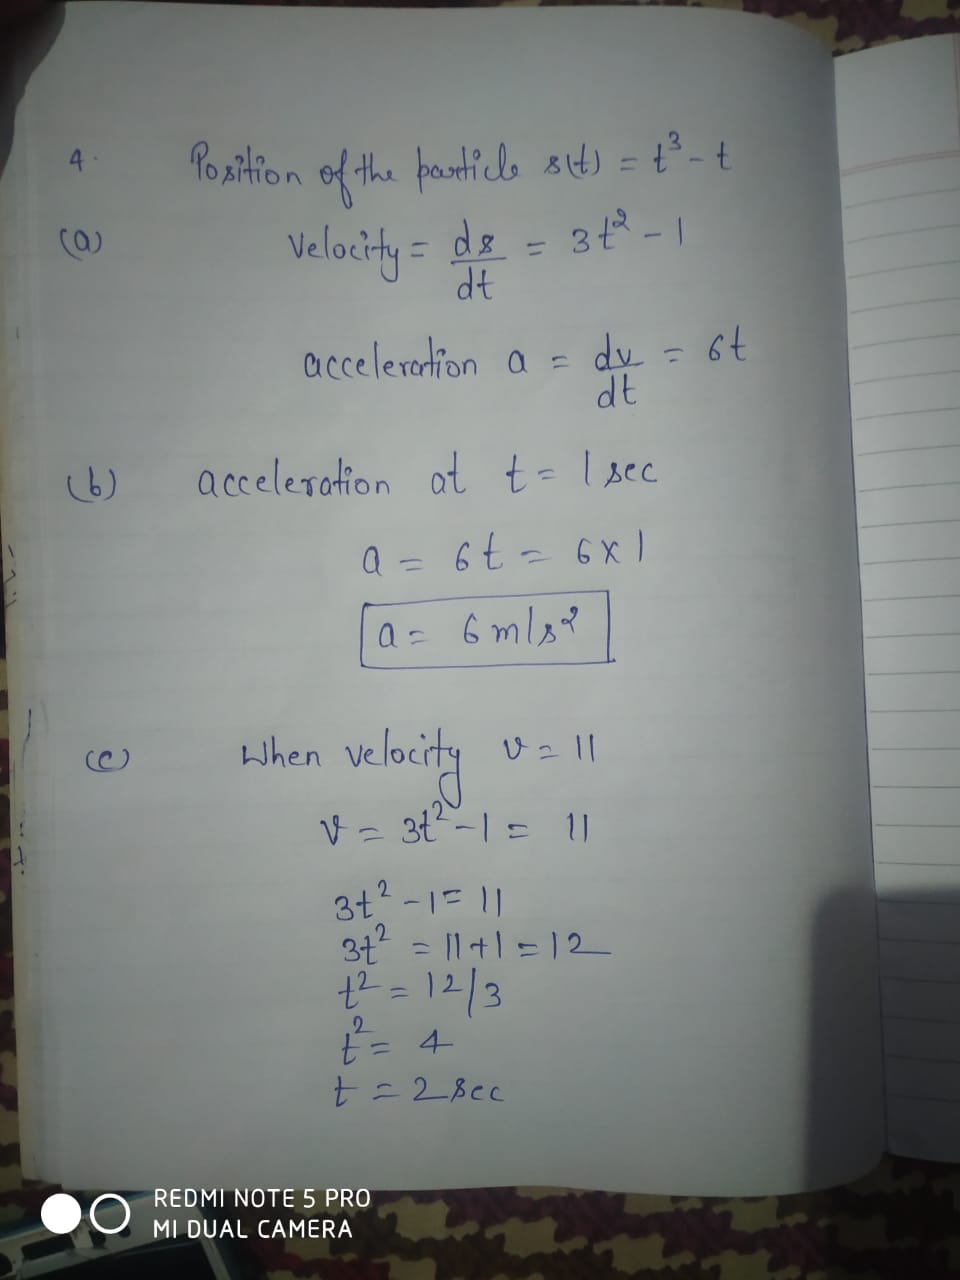 4. Position of the particle s(t) = t³ - t
(a) velocity = ds/dt = 3t² - 1
acceleration a = dv/dt = 6t
(b) acceleration at t = 1 sec
a = 6t = 6 x 1
a = 6 m/s²
(c) When velocity v = 11
v = 3t² - 1 = 11
3t² - 1 = 11
3t² = 11 + 1 = 12
t² = 12/3
t² = 4
t = 2 sec
REDMI NOTE 5 PRO
MI DUAL CAMERA